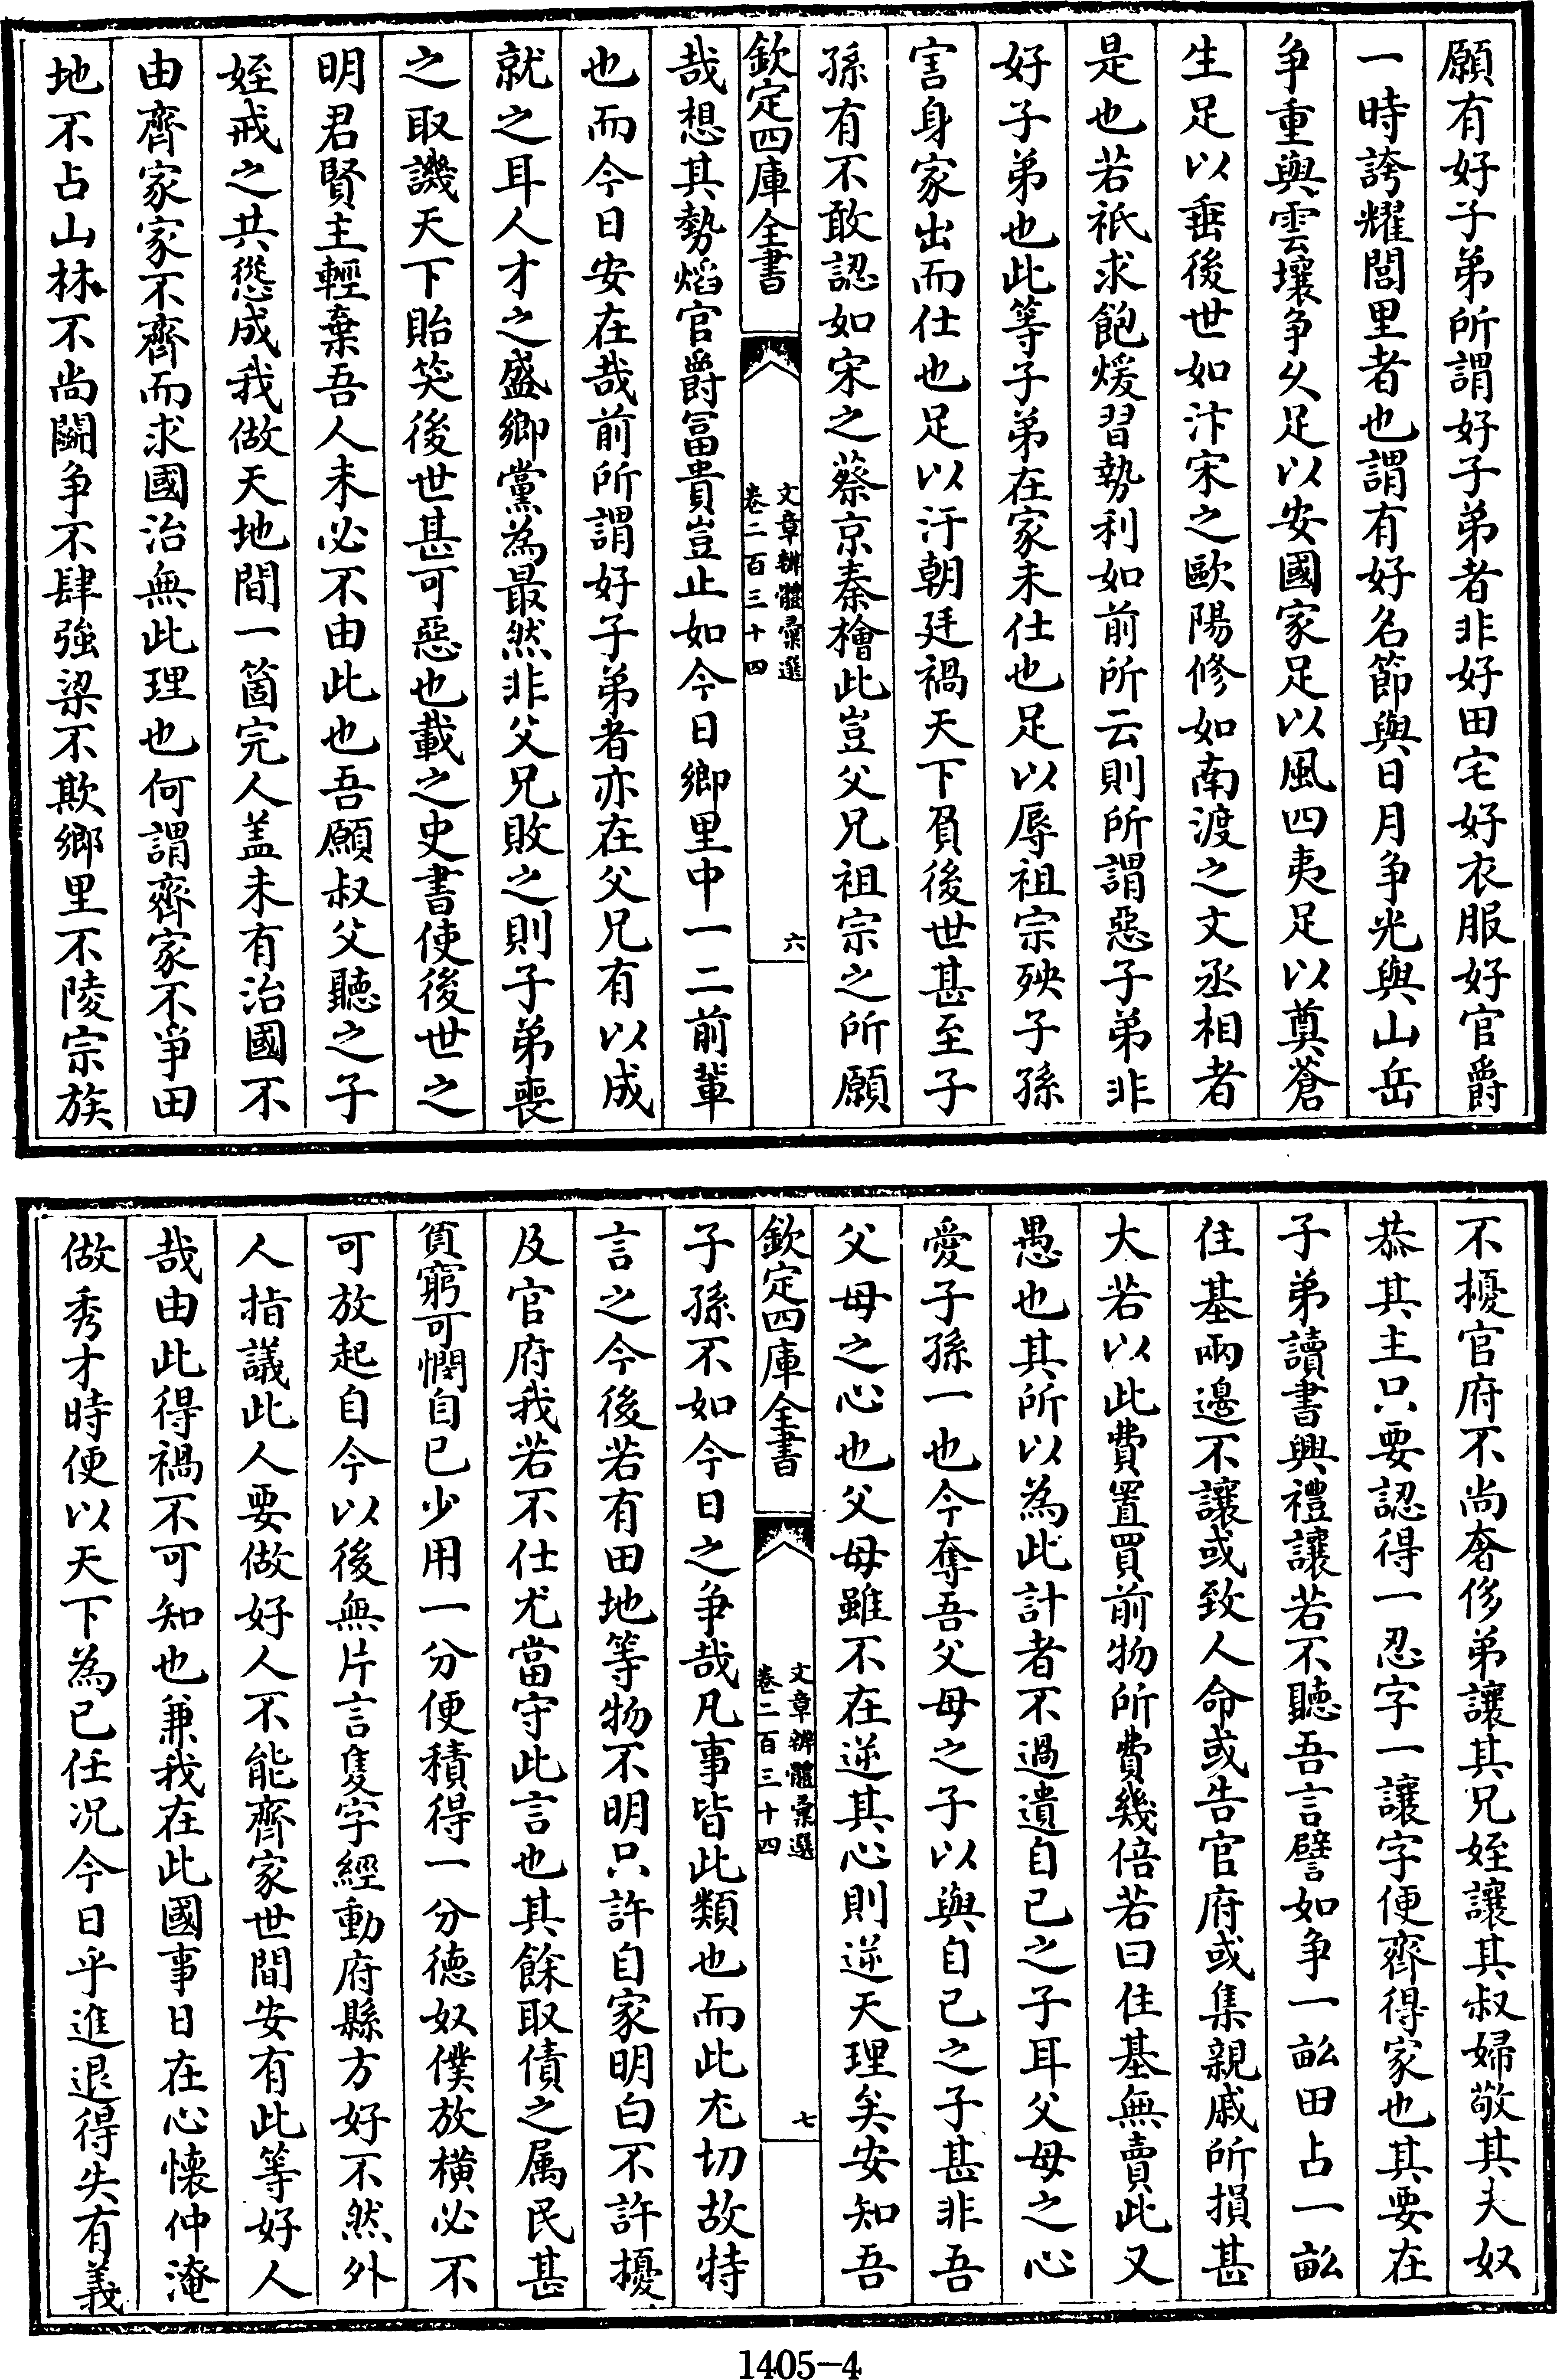 願有好子弟所謂好子弟者非好田宅好衣服好官爵
一時誇耀閭里者也謂有好名節與日月争光與山岳
争重與雲壤争久足以安國家足以風四夷足以奠蒼
生足以垂後世如汴宋之歐陽修如南渡之文丞相者
是也若祇求飽煖習勢利如前所云則所謂惡子弟非
好子弟也此等子弟在家未仕也足以辱祖宗殃子孫
害身家出而仕也足以汙朝廷禍天下負後世甚至子
孫有不敢認如宋之蔡京秦檜此豈父兄祖宗之所願
欽定四庫全書
文章辨體彚選
卷二百三十四
六
哉想其勢熖官爵冨貴豈止如今日鄉里中一二前輩
也而今日安在哉前所謂好子弟者亦在父兄有以成
就之耳人才之盛鄉黨為最然非父兄敗之則子弟喪
之取譏天下貽笑後世甚可惡也載之史書使後世之
明君賢主輕棄吾人未必不由此也吾願叔父聽之子
姪戒之共慫成我做天地間一箇完人盖未有治國不
由齊家家不齊而求國治無此理也何謂齊家不爭田
地不占山林不尚鬬争不肆強梁不欺鄉里不陵宗族
不擾官府不尚奢侈弟讓其兄姪讓其叔婦敬其夫奴
恭其主只要認得一忍字一讓字便齊得家也其要在
子弟讀書興禮讓若不聽吾言譬如争一畝田占一畝
住基兩邊不讓或致人命或告官府或集親戚所損甚
大若以此費置買前物所費幾倍若曰住基無賣此又
愚也其所以為此計者不過遺自己之子耳父母之心
愛子孫一也今奪吾父母之子以與自己之子甚非吾
父母之心也父母雖不在逆其心則逆天理矣安知吾
欽定四庫全書
文章辨體彚選
卷二百三十四
七
子孫不如今日之争哉凡事皆此類也而此尤切故特
言之今後若有田地等物不明只許自家明白不許擾
及官府我若不仕尤當守此言也其餘取債之属民甚
貧窮可憫自己少用一分便積得一分德奴僕放橫必不
可放起自今以後無片言隻字經動府縣方好不然外
人指議此人要做好人不能齊家世間安有此等好人
哉由此得禍不可知也兼我在此國事日在心懐仲淹
做秀才時便以天下為已任况今日乎進退得失有義
1405-4